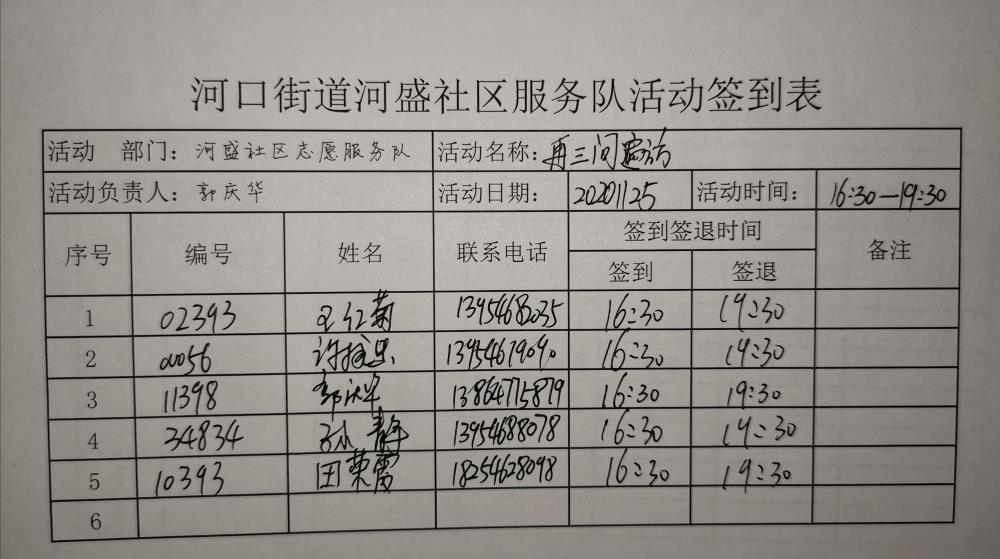 河口街道河盛社区服务队活动签到表
活动 部门：河盛社区志愿服务队 活动名称：再三问
活动负责人：郭庆华 活动日期：20201125 活动时间：16:30—19:30
序号 编号 姓名 联系电话 签到签退时间 备注
签到 签退
1 02393 王红菊 13954682035 16:30 19:30
2 00056 许 13954679090 16:30 19:30
3 11398 郭庆华 13864775879 16:30 19:30
4 34834 孙静 13954688078 16:30 19:30
5 10393 田荣雷 18254628098 16:30 19:30
6